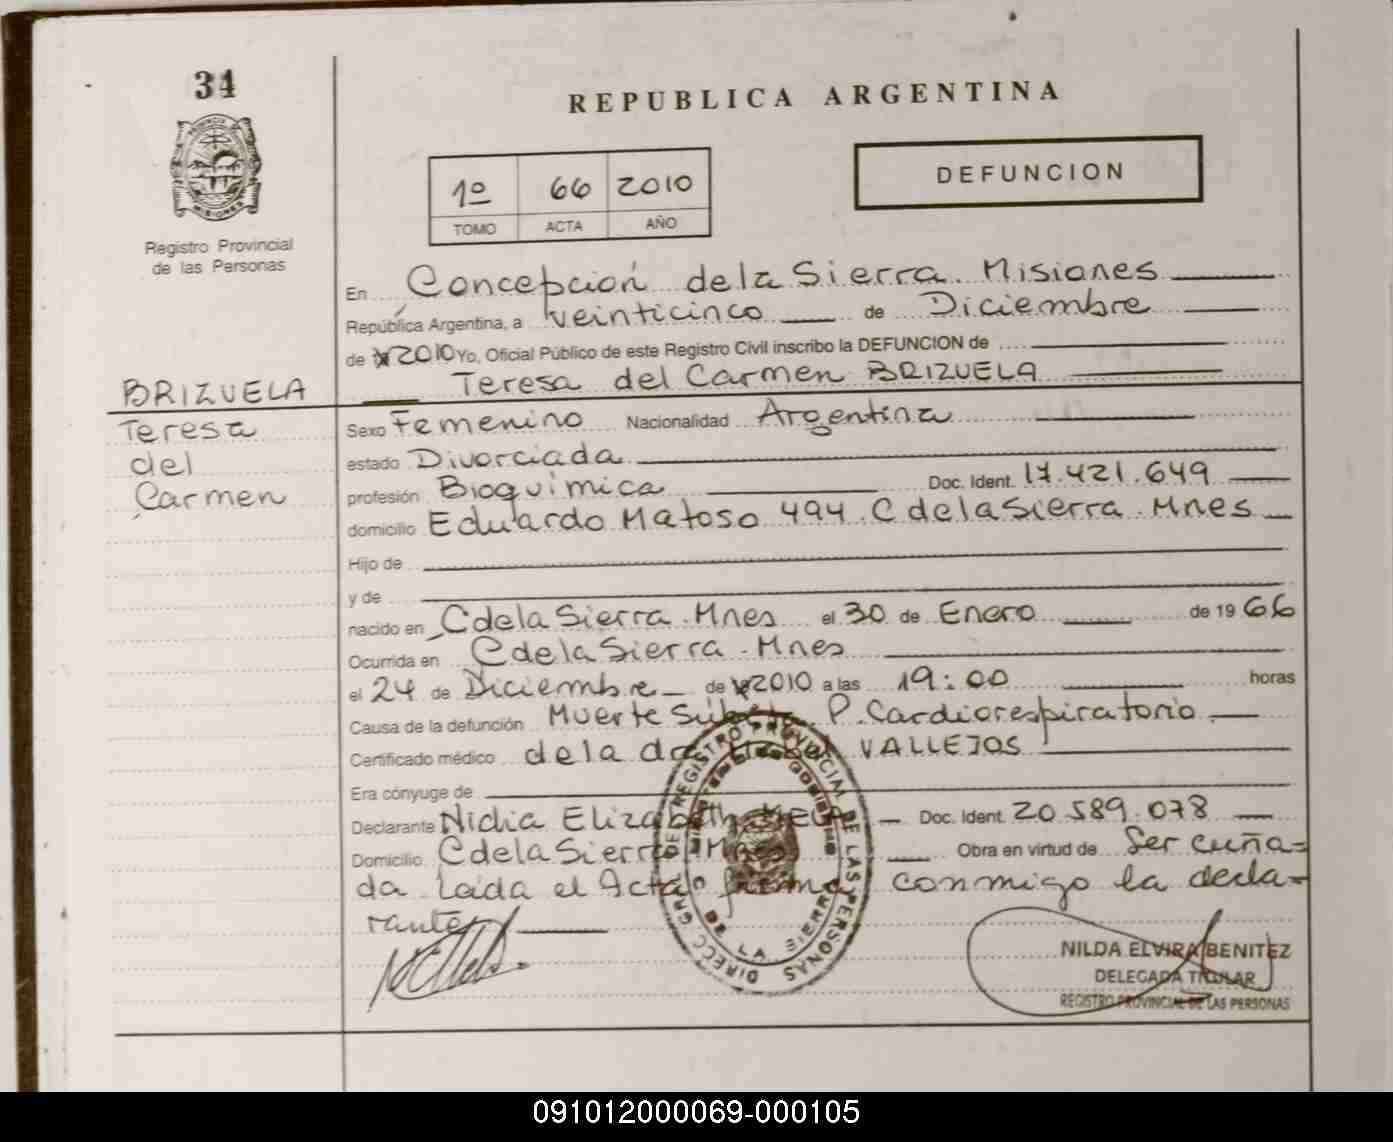 34
PROVINCIA DE MISIONES
Registro Provincial
de las Personas
REPUBLICA ARGENTINA
1º 66 2010
TOMO ACTA AÑO
DEFUNCION
En Concepción de la Sierra. Misiones
República Argentina, a veinticinco de Diciembre
de 2010 Yo, Oficial Público de este Registro Civil inscribo la DEFUNCION de
Teresa del Carmen BRIZUELA
BRIZUELA
Teresa
del
Carmen
Sexo Femenino Nacionalidad Argentina
estado Divorciada
profesión Bioquímica Doc. Ident. 17.421.649
domicilio Eduardo Matoso 494. C de la Sierra. Mnes
Hijo de
y de
nacido en C de la Sierra. Mnes el 30 de Enero de 19 66
Ocurrida en C de la Sierra. Mnes
el 24 de Diciembre de 2010 a las 19:00 horas
Causa de la defunción Muerte Súbita P. Cardiorespiratorio.
Certificado médico de la dra VALLEJOS
Era cónyuge de
Declarante Nidia Elizabeth Doc. Ident. 20.589.078
Domicilio C de la Sierra Mnes Obra en virtud de Ser cuña=
da Leída el Acta firma conmigo la decla=
rante
DIRECC. GRAL. DE REGISTRO PROVINCIAL DE LAS PERSONAS
DE LA SIERRA
NILDA ELVIRA BENITEZ
DELEGADA TITULAR
REGISTRO PROVINCIAL DE LAS PERSONAS
091012000069-000105